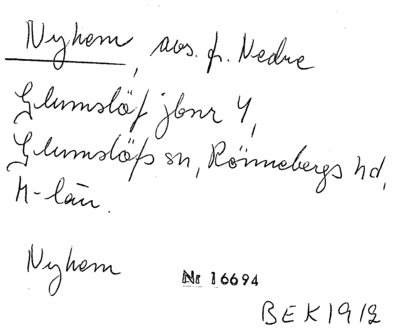 Nyhem, avs. fr. Nedre
Glumslöf jbnr 4,
Glumslöfs sn, Rönnebergs hd,
M-län.
Nyhem
Nr 16694
BEK 1912